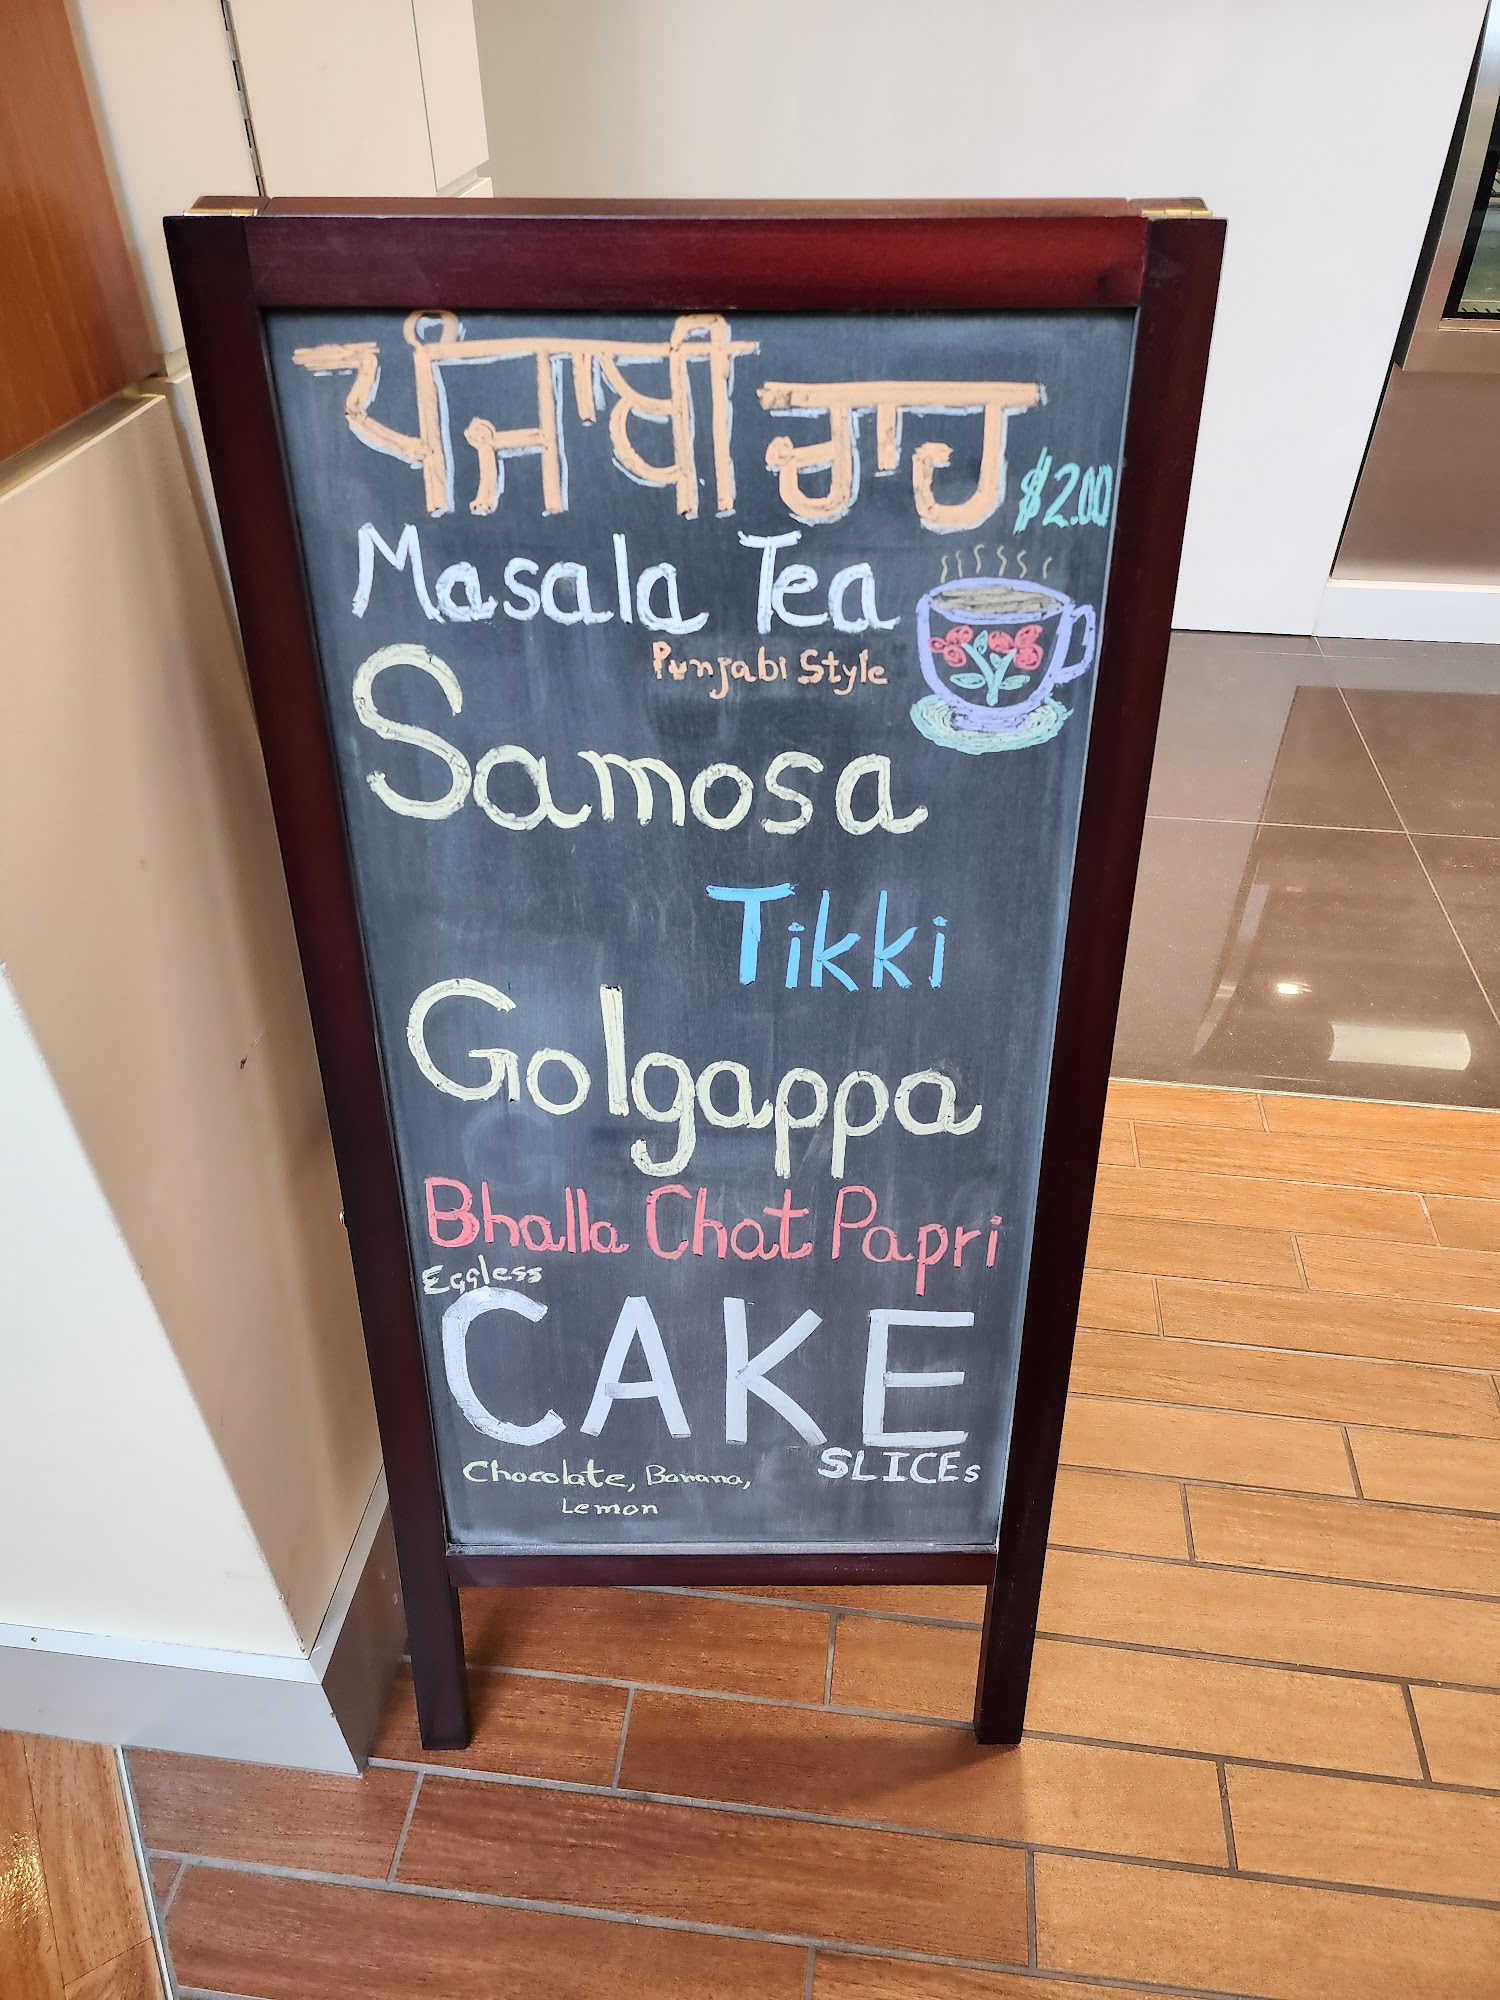 ਪੰਜਾਬੀ ਚਾਹ
$2.00
Masala Tea
Punjabi Style
Samosa
Tikki
Golgappa
Bhalla Chat Papri
Eggless
CAKE
SLICEs
Chocolate, Banana,
Lemon